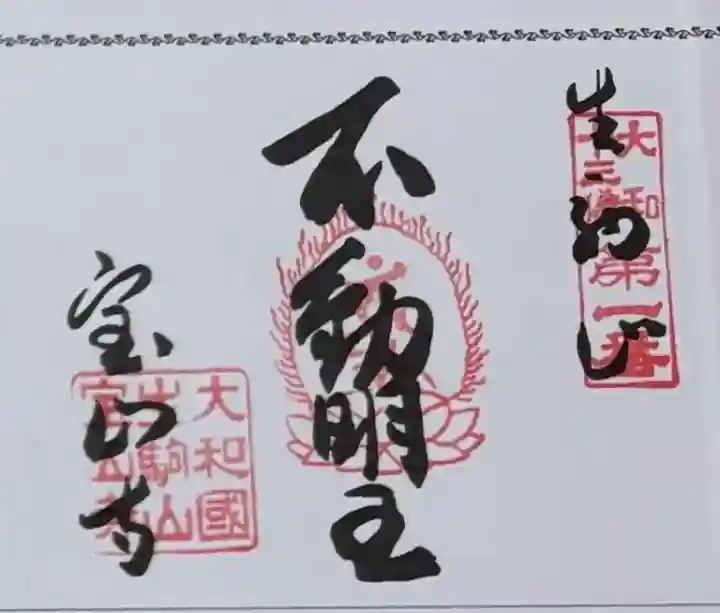 大和
十三佛
第一番
不動明王
宝山寺
大和國
生駒山
宝山寺